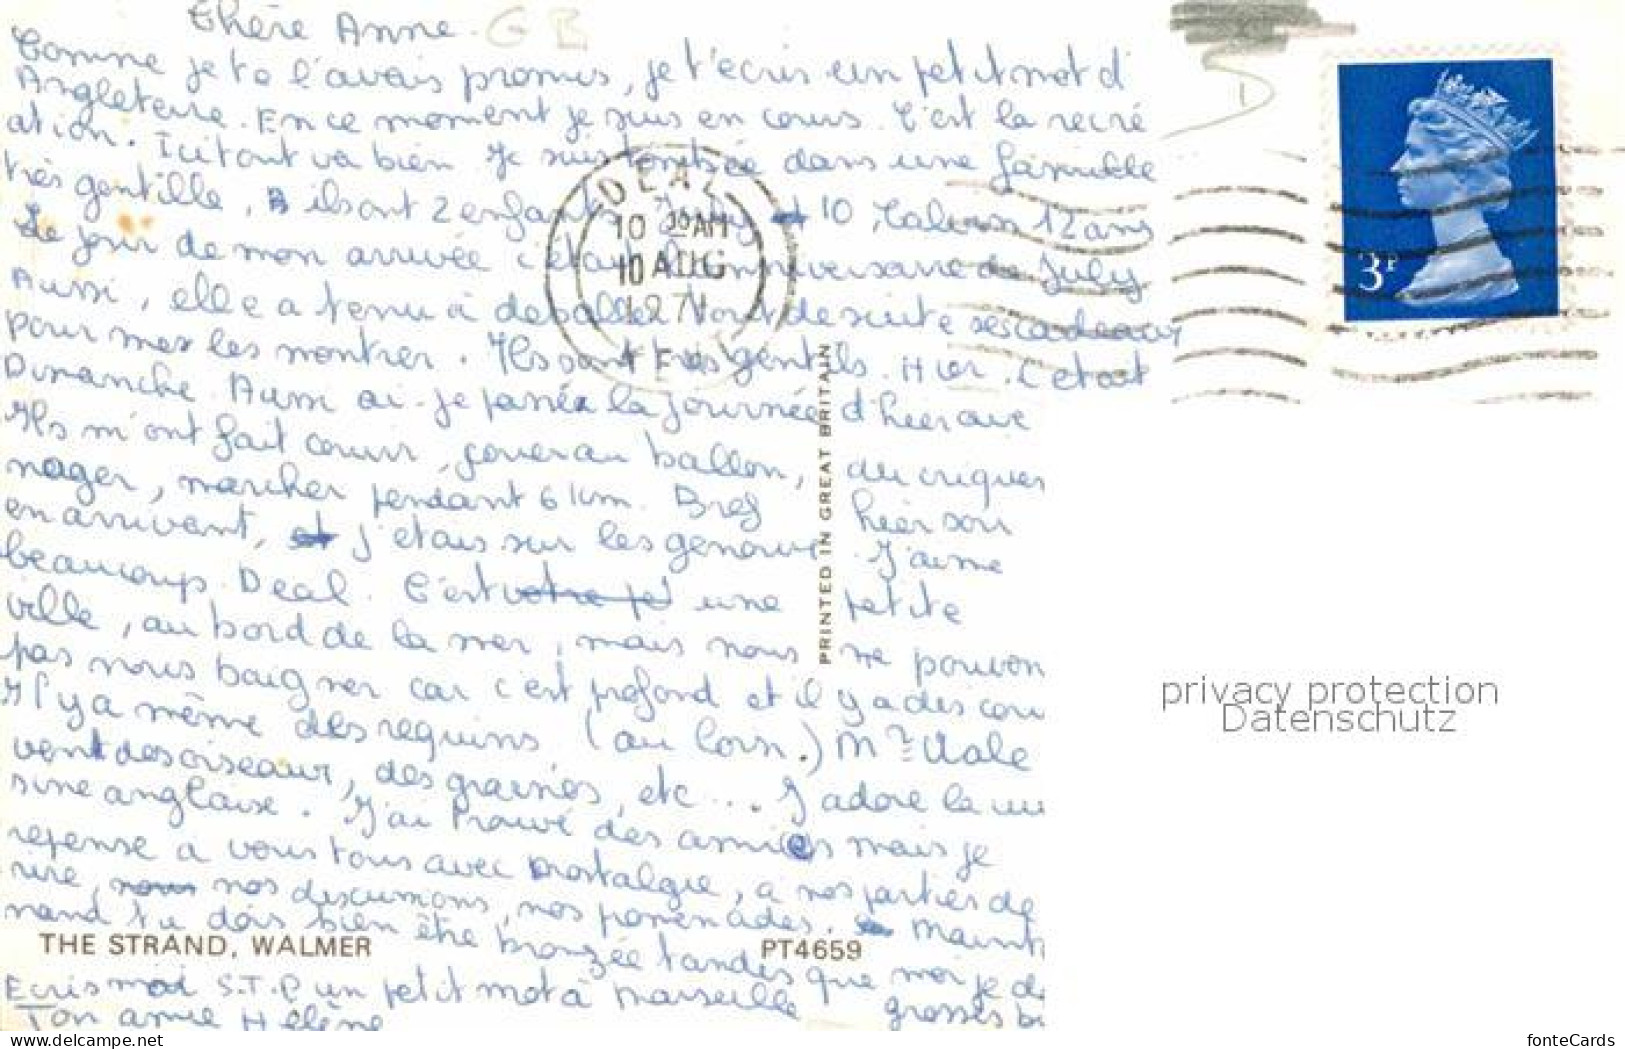 Chère Anne. GB
Comme je te l'avais promis, je t'ecris un petit mot d'
Angleterre. En ce moment je suis en cours. C'est la recré
ation. Ici tout va bien Je suis tombée dans une famille
très gentille, ils ont 2 enfants July 10 12 ans
Le jour de mon arrivée c'était l'anniversaire de July
Aussi, elle a tenu à deballer tout de suite ses cadeaux
pour me les montrer. Ils sont très gentils. Hier c'etait
Dimanche. Aussi ai-je passée la journée d'hier avec
Ils m'ont fait courir, jouer au ballon, du criquet
nager, marcher pendant 6 km. Bref hier soir
en arrivant, j'etais sur les genoux. J'aime
beaucoup Deal. C'est une petite
ville, au bord de la mer, mais nous ne pouvon
pas nous baigner car c'est profond et il y a des cou
Il y a même des requins (au loin.) Mr Vale
vent des oiseaux, des graines, etc... J'adore la cui
sine anglaise. J'ai trouvé des amies mais je
repense a vous tous avec nostalgie, a nos parties de
rire, nos discussions, nos promenades. Mainte
nant tu dois bien être bronzée tandis que moi je d
Ecris moi S.T.P un petit mot à Marseille grosses bi
Ton amie Hélène
DEAL
10 30 AM
10 AUG
1971
KENT
3P
PRINTED IN GREAT BRITAIN
THE STRAND, WALMER
PT4659
privacy protection
Datenschutz
www.delcampe.net
fonteCards